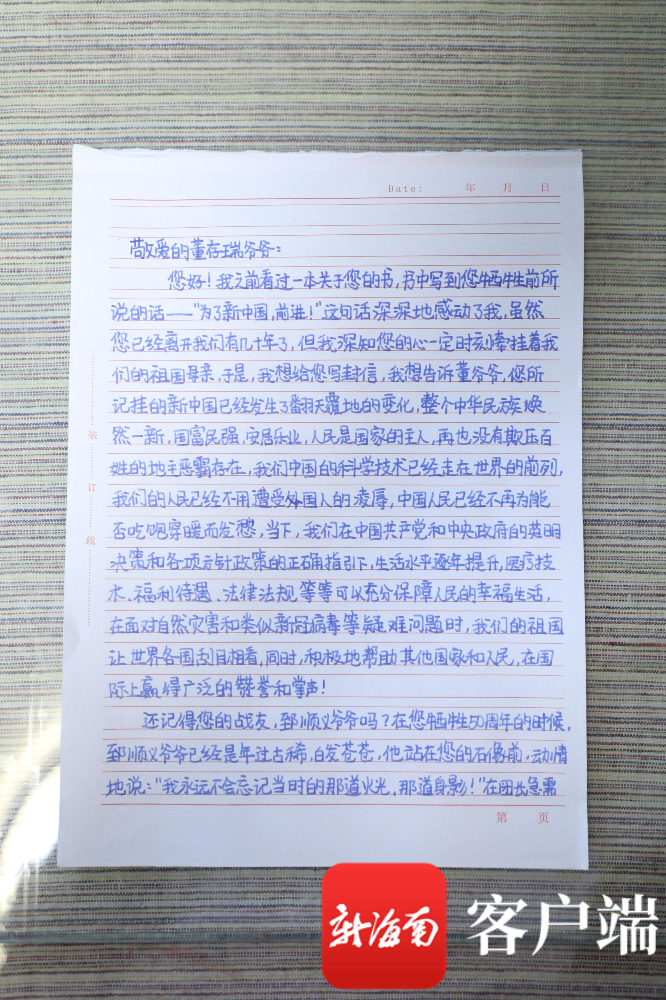 Date: 年 月 日
敬爱的董存瑞爷爷：
您好！我之前看过一本关于您的书，书中写到您牺牲前所
说的话——“为了新中国，前进！”这句话深深地感动了我，虽然
您已经离开我们有几十年了，但我深知您的心一定时刻牵挂着我
们的祖国母亲，于是，我想给您写封信，我想告诉董爷爷，您所
记挂的新中国已经发生了翻天覆地的变化，整个中华民族焕
然一新，国富民强，安居乐业，人民是国家的主人，再也没有欺压百
姓的地主恶霸存在，我们中国的科学技术已经走在世界的前列，
我们的人民已经不用遭受外国人的凌辱，中国人民已经不再为能
否吃饱穿暖而发愁，当下，我们在中国共产党和中央政府的英明
决策和各项方针政策的正确指引下，生活水平逐年提升，医疗技
术、福利待遇、法律法规等等可以充分保障人民的幸福生活，
在面对自然灾害和类似新冠病毒等疑难问题时，我们的祖国
让世界各国刮目相看，同时，积极地帮助其他国家和人民，在国
际上赢得广泛的赞誉和掌声！
还记得您的战友，郅顺义爷爷吗？在您牺牲50周年的时候，
郅顺义爷爷已经是年过古稀，白发苍苍，他站在您的石像前，动情
地说：“我永远不会忘记当时的那道火光，那道身影！”在团长急需
装
订
线
第 页
新海南
客户端